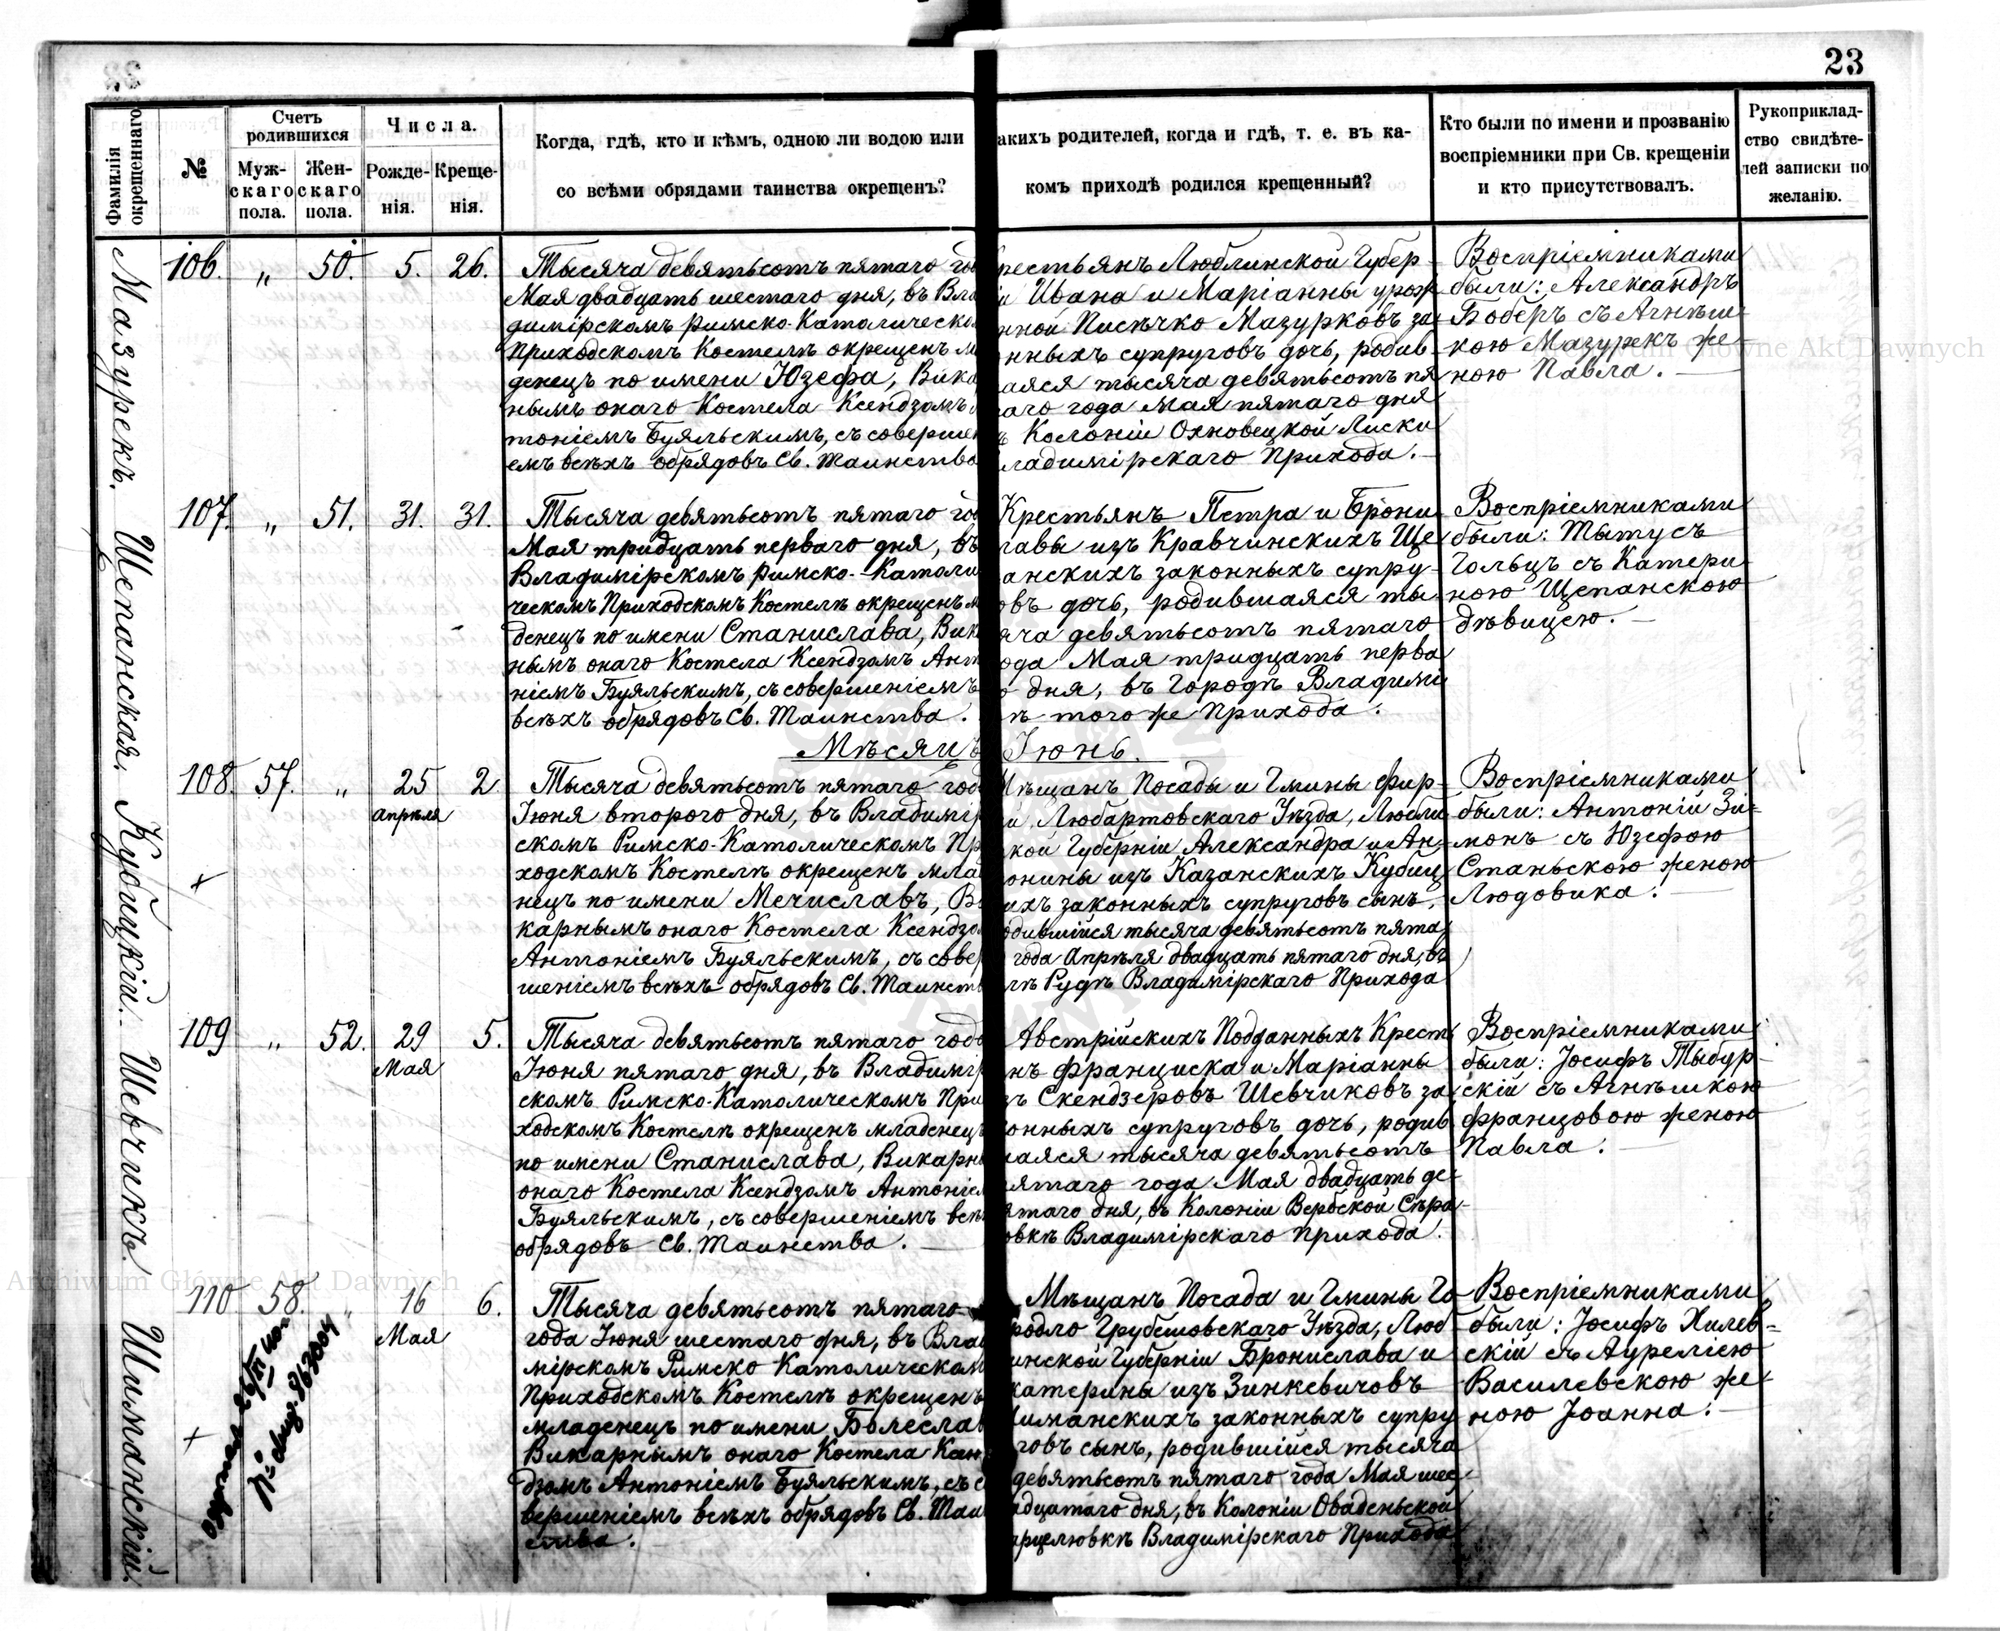 23
Фамилія окрещеннаго.
№
Счетъ родившихся
Муж-
скаго
пола.
Жен-
скаго
пола.
Числа.
Рожде-
нія.
Креще-
нія.
Когда, гдѣ, кто и кѣмъ, одною ли водою или
со всѣми обрядами таинства окрещенъ?
акихъ родителей, когда и гдѣ, т. е. въ ка-
комъ приходѣ родился крещенный?
Кто были по имени и прозванію
воспріемники при Св. крещеніи
и кто присутствовалъ.
Рукоприклад-
ство свидѣте-
лей записки по
желанію.
Мазурекъ.
106. „ 50. 5. 26.
Тысяча девятьсотъ пятаго го
Мая двадцать шестаго дня, въ Вла
димірскомъ римско-Католическо
Приходскомъ Костелѣ окрещенъ м
денецъ по имени Юзефа, Вика
нымъ онаго Костела Ксендзомъ
тоніемъ Буяльскимъ, съ соверше
емъ всѣхъ обрядовъ Св. Таинства
рестьянъ Люблинской Губер-
и Ивана и Маріанны урож
ной Писѣчко Мазурковъ за
нныхъ супруговъ дочь, родив-
аяся тысяча девятьсотъ пя
аго года Мая пятаго дня
ъ Колоніи Охновецкой Лиски
ладимірскаго Прихода.
Воспріемниками
были: Александръ
Боберъ съ Агнѣш-
кою Мазурекъ же-
ною Павла.
Щепанская.
107. „ 51. 31. 31.
Тысяча девятьсотъ пятаго го
Мая тридцать перваго дня, въ
Владимірскомъ римско-Католи
ческомъ Приходскомъ Костелѣ окрещенъ м
денецъ по имени Станислава, Вик
нымъ онаго Костела Ксендзомъ Ант
ніемъ Буяльскимъ, съ совершеніемъ
всѣхъ обрядовъ Св. Таинства.
Крестьянъ Петра и Брони
лавы изъ Кравчинскихъ Ще
анскихъ законныхъ супру-
овъ дочь, родившаяся ты
яча девятьсотъ пятаго
ода Мая тридцать перва
о дня, въ Городѣ Владими
ѣ того же Прихода.
Воспріемниками
были: Тытусъ
Гольцъ съ Катери
ною Щепанскою
дѣвицею.
Мѣсяцъ Іюнь.
Кубицкій.
108. 57. „ 25 апрѣля 2
Тысяча девятьсотъ пятаго год
Іюня втораго дня, въ Владимір
скомъ Римско-Католическомъ Пр
ходскомъ Костелѣ окрещенъ млад
нецъ по имени Мечиславъ, В
карнымъ онаго Костела Ксендзо
Антоніемъ Буяльскимъ, съ совер
шеніемъ всѣхъ обрядовъ Св. Таинств
Мѣщанъ Посады и Гмины Фир-
й, Любартовскаго Уѣзда, Любли
ской Губерніи Александра и Ан-
онины изъ Казанскихъ Кубиц
ихъ законныхъ супруговъ сынъ,
одившійся тысяча девятьсотъ пята
года Апрѣля двадцать пятаго дня, въ
лѣ Рудѣ Владимірскаго Прихода
Воспріемниками
были: Антоній Зи-
монъ съ Юзефою
Станьскою женою
Людовика.
Шевчикъ.
109 „ 52. 29 Мая 5.
Тысяча девятьсотъ пятаго года
Іюня пятаго дня, въ Владимір
скомъ Римско-Католическомъ При
ходскомъ Костелѣ окрещенъ младенецъ
по имени Станислава, Викарн
онаго Костела Ксендзомъ Антоніем
Буяльскимъ, съ совершеніемъ всѣ
обрядовъ Св. Таинства.
Австрійскихъ Подданныхъ Кресть
нъ Франциска и Маріанны
зъ Скендзеровъ Шевчиковъ за
онныхъ супруговъ дочь, родив
шаяся тысяча девятьсотъ
ятаго года Мая двадцать де-
ятаго дня, въ Колоніи Вербской Сѣра-
овкѣ Владимірскаго Прихода.
Воспріемниками
были: Іосифъ Тыбур-
скій съ Агнѣшкою
Францовою женою
Павла.
Шиманскій.
110 58. „ 16 Мая 6.
Тысяча девятьсотъ пятаго
года Іюня шестаго дня, въ Влад
мірскомъ Римско Католическом
Приходскомъ Костелѣ окрещенъ
младенецъ по имени Болеслав
Викарнымъ онаго Костела Ксен
дзомъ Антоніемъ Буяльскимъ, съ с
вершеніемъ всѣхъ обрядовъ Св. Таин
ства.
Мѣщанъ Посада и Гмины Го
родло Грубешовскаго Уѣзда, Люб
инской Губерніи Бронислава и
катерины изъ Зинкевичовъ
иманскихъ законныхъ супру
говъ сынъ, родившійся тысяча
девятьсотъ пятаго года Мая шес-
адцатаго дня, въ Колоніи Оваденьской
арцелювкѣ Владимірскаго Прихода
Воспріемниками
были: Іосифъ Хилев-
скій съ Аурелією
Василевскою же
ною Іоанна.
Archiwum Główne Akt Dawnych